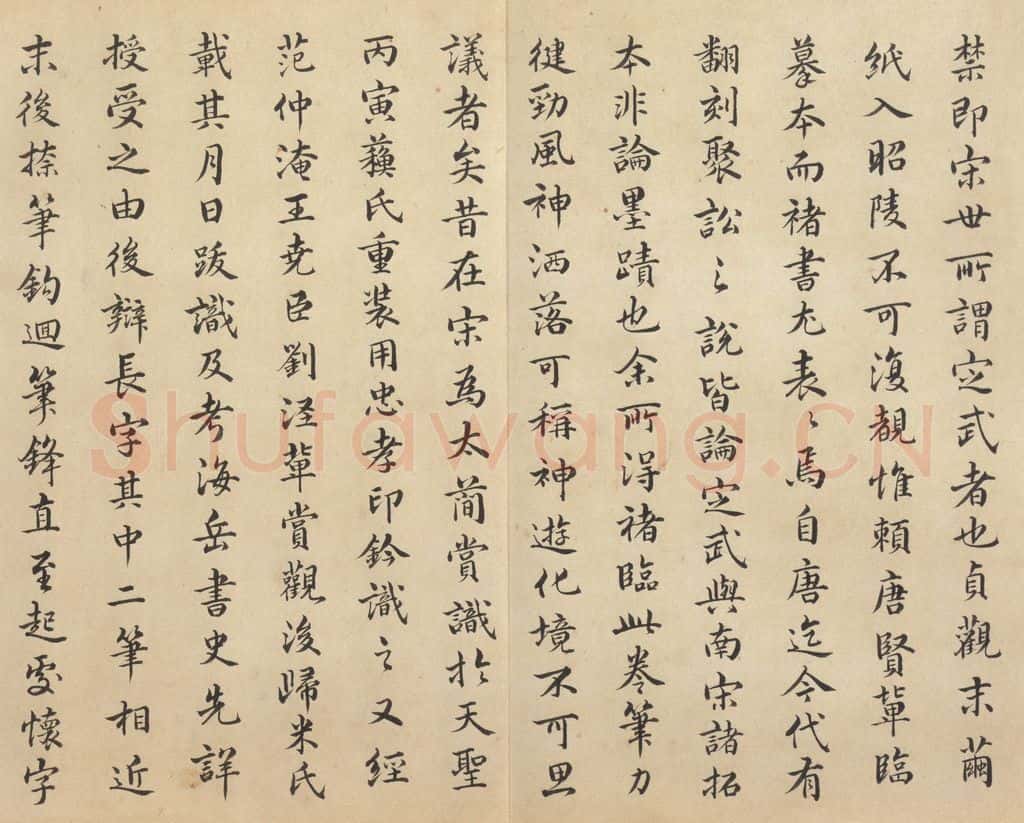 禁即宋世所謂定武者也貞觀末繭
紙入昭陵不可復覩惟賴唐賢軰臨
摹本而褚書尤表〻焉自唐迄今代有
翻刻聚訟〻說皆論定武與南宋諸拓
本非論墨蹟也余所得褚臨此卷筆力
徤勁風神洒落可稱神遊化境不可思
議者矣昔在宋爲太簡賞識於天聖
丙寅蘓氏重裝用忠孝印鈐識之又經
范仲淹王尭臣劉涇軰賞觀後歸米氏
載其月日跋識及考海岳書史先詳
授受之由後辯長字其中二筆相近
末後捺筆鈎迴筆鋒直至起處懷字
Shufawang.CN